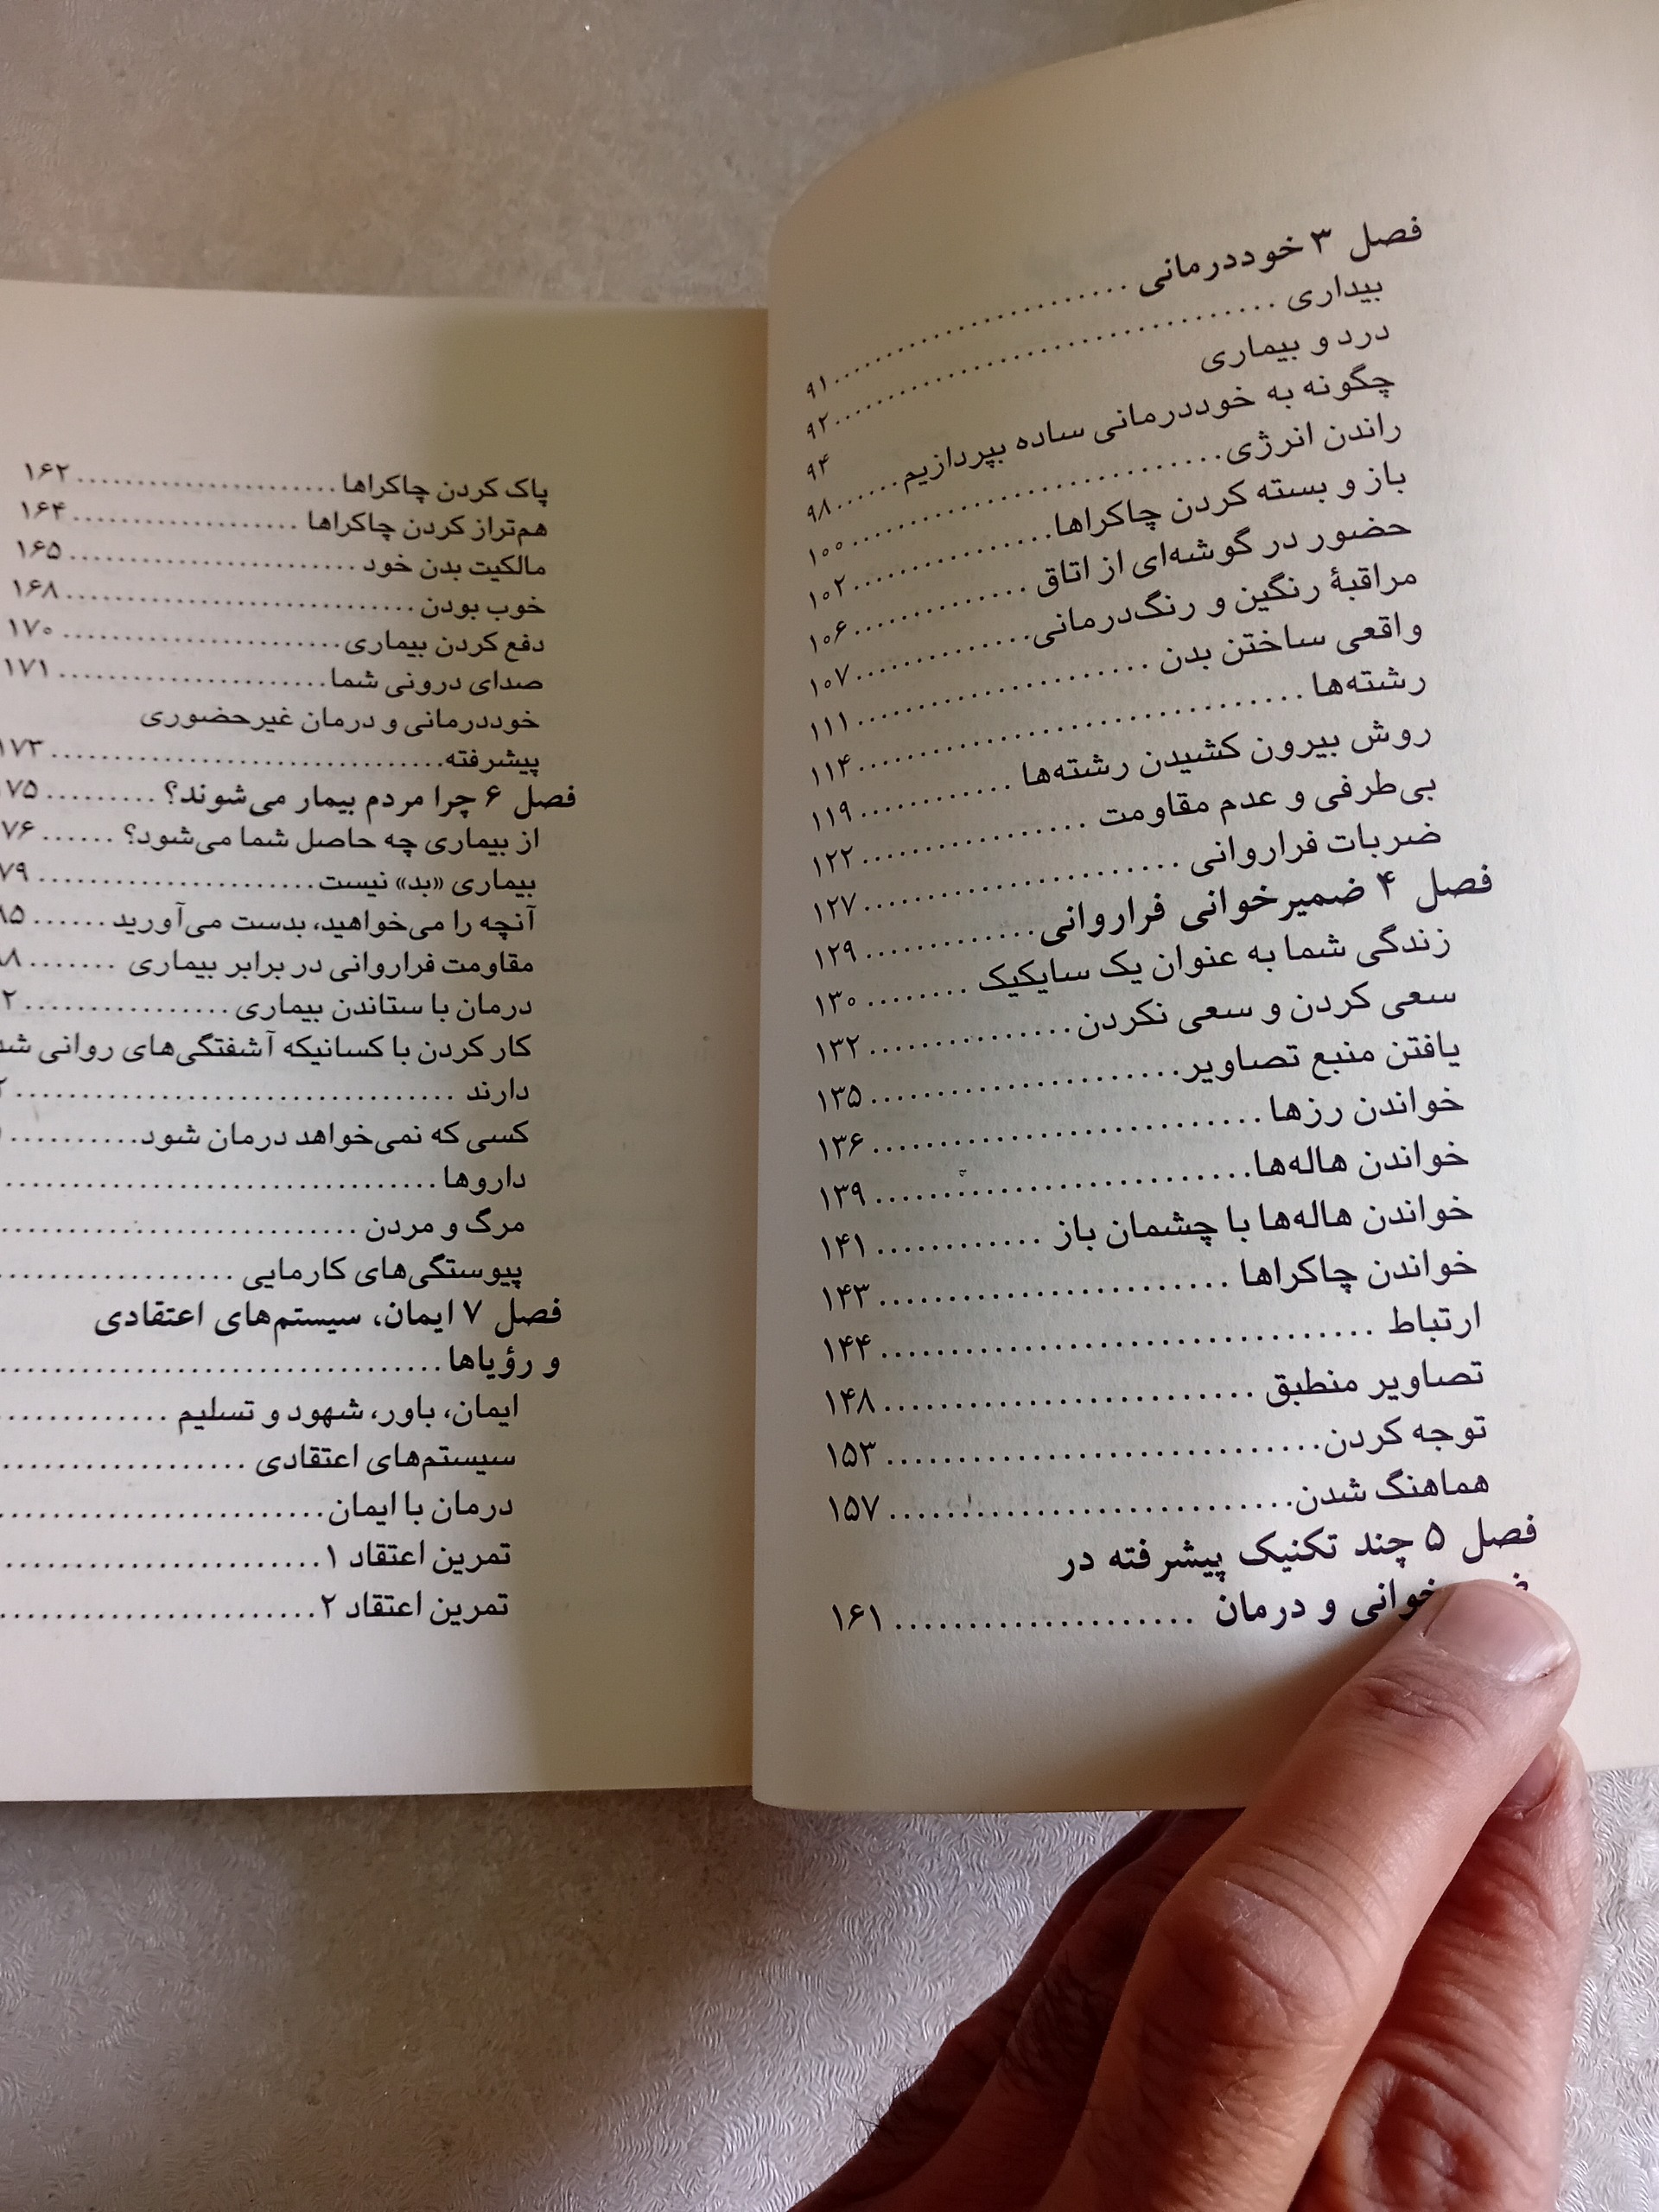 فصل ۳ خوددرمانی ........ ۹۱
بیداری ........ ۹۲
درد و بیماری ۹۴
چگونه به خوددرمانی ساده بپردازیم ...... ۹۸
راندن انرژی ........ ۱۰۰
باز و بسته کردن چاکراها ........ ۱۰۲
حضور در گوشه‌ای از اتاق ........ ۱۰۶
مراقبهٔ رنگین و رنگ‌درمانی ........ ۱۰۷
واقعی ساختن بدن ........ ۱۱۱
رشته‌ها ........ ۱۱۴
روش بیرون کشیدن رشته‌ها ........ ۱۱۹
بی‌طرفی و عدم مقاومت ........ ۱۲۲
ضربات فراروانی ........ ۱۲۷
فصل ۴ ضمیرخوانی فراروانی ........ ۱۲۹
زندگی شما به عنوان یک سایکیک ........ ۱۳۰
سعی کردن و سعی نکردن ........ ۱۳۲
یافتن منبع تصاویر ........ ۱۳۵
خواندن رزها ........ ۱۳۶
خواندن هاله‌ها ........ ۱۳۹
خواندن هاله‌ها با چشمان باز ........ ۱۴۱
خواندن چاکراها ........ ۱۴۳
ارتباط ........ ۱۴۴
تصاویر منطبق ........ ۱۴۸
توجه کردن ........ ۱۵۳
هماهنگ شدن ........ ۱۵۷
فصل ۵ چند تکنیک پیشرفته در
خوانی و درمان ........ ۱۶۱
پاک کردن چاکراها ........ ۱۶۲
هم‌تراز کردن چاکراها ........ ۱۶۴
مالکیت بدن خود ........ ۱۶۵
خوب بودن ........ ۱۶۸
دفع کردن بیماری ........ ۱۷۰
صدای درونی شما ........ ۱۷۱
خوددرمانی و درمان غیرحضوری
پیشرفته ........ ۱۷۳
فصل ۶ چرا مردم بیمار می‌شوند؟ ........ ۷۵
از بیماری چه حاصل شما می‌شود؟ ...... ۷۶
بیماری «بد» نیست ........ ۷۹
آنچه را می‌خواهید، بدست می‌آورید ...... ۸۵
مقاومت فراروانی در برابر بیماری ....... ۸۸
درمان با ستاندن بیماری ........ ۲
کار کردن با کسانیکه آشفتگی‌های روانی
دارند ........ ۲
کسی که نمی‌خواهد درمان شود ........
داروها ........
مرگ و مردن ........
پیوستگی‌های کارمایی ........
فصل ۷ ایمان، سیستم‌های اعتقادی
و رؤیاها ........
ایمان، باور، شهود و تسلیم ........
سیستم‌های اعتقادی ........
درمان با ایمان ........
تمرین اعتقاد ۱ ........
تمرین اعتقاد ۲ ........